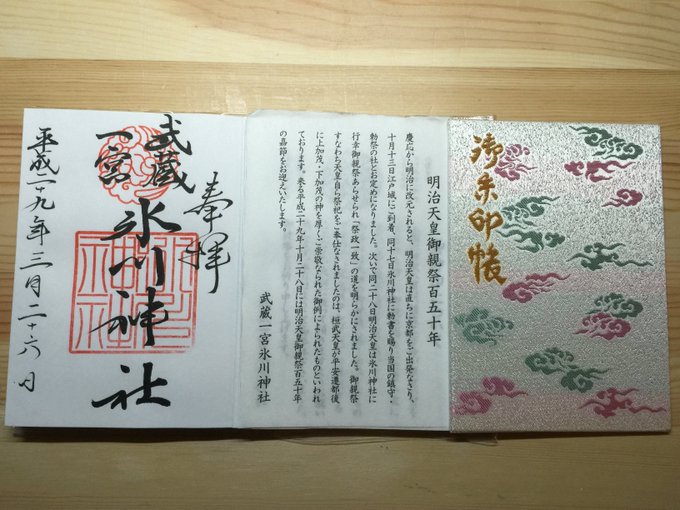 御朱印帳
明治天皇御親祭百五十年
慶応から明治に改元されると、明治天皇は直ちに京都をご出発なさり、
十月十三日江戸城にご到着、同十七日氷川神社に勅書を賜り当国の鎮守・
勅祭の社とお定めになりました。次いで同二十八日明治天皇は氷川神社に
行幸御親祭あらせられ「祭政一致」の道を明らかにされました。御親祭
すなわち天皇自ら祭祀をご奉仕なされましたのは、桓武天皇が平安遷都後
に上加茂・下加茂の神を厚くご崇敬なられた御例によられたものといわれ
ております。来る平成二十九年十月二十八日には明治天皇御親祭百五十年
の嘉節をお迎えいたします。
武蔵一宮氷川神社
奉拝
武蔵
一宮
氷川神社
氷川
神社
平成二十九年三月二十六日